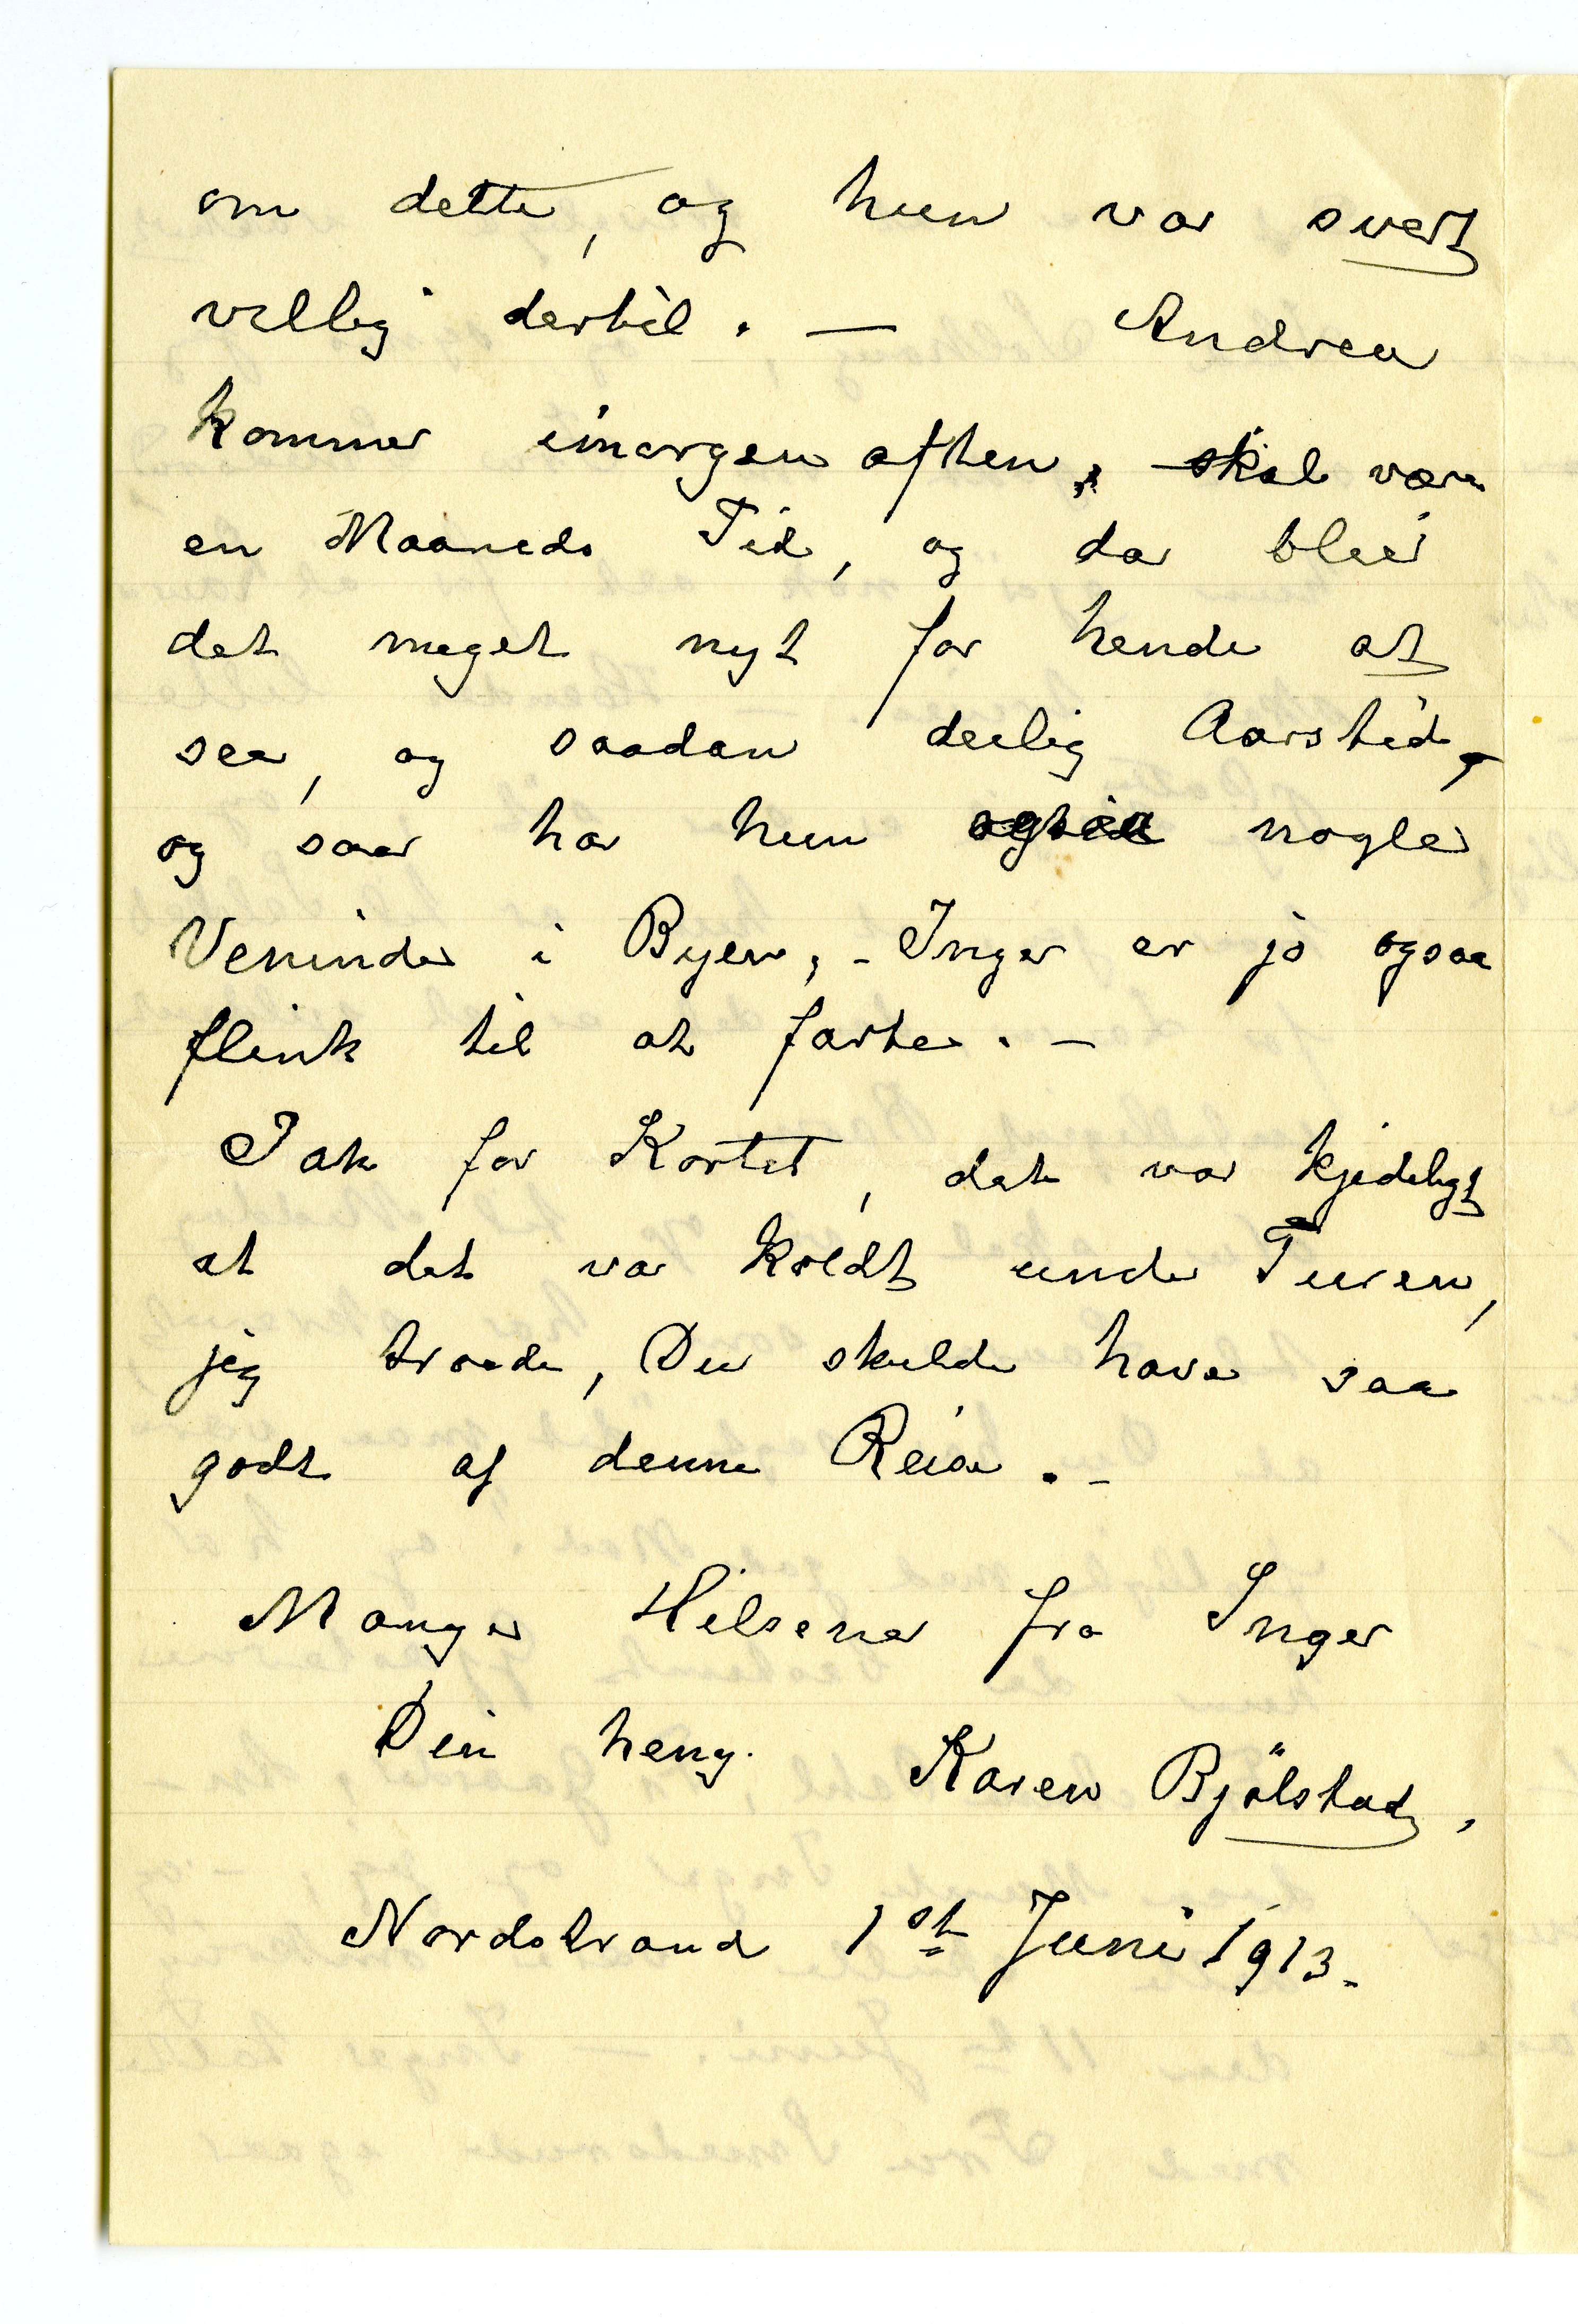 om dette, og hun var svert
villig dertil. —  Andrea
kommer imorgen aften, skal være
en Maaneds Tid, og da blir
det meget nyt for hende at
see, og saadan deilig Aarstid,
og saa har hun nogle
Veninder i Byen, - Inger er jo ogsaa
flink til at farte. —
Tak for Kortet, det var kjedeligt
at det var koldt under Turen,
jeg troede, Du skulde have saa
godt af denne Reise. -
Mange Hilsener fra Inger
Din heng. Karen Bjölstad,
Nordstrand 1st Juni 1913.